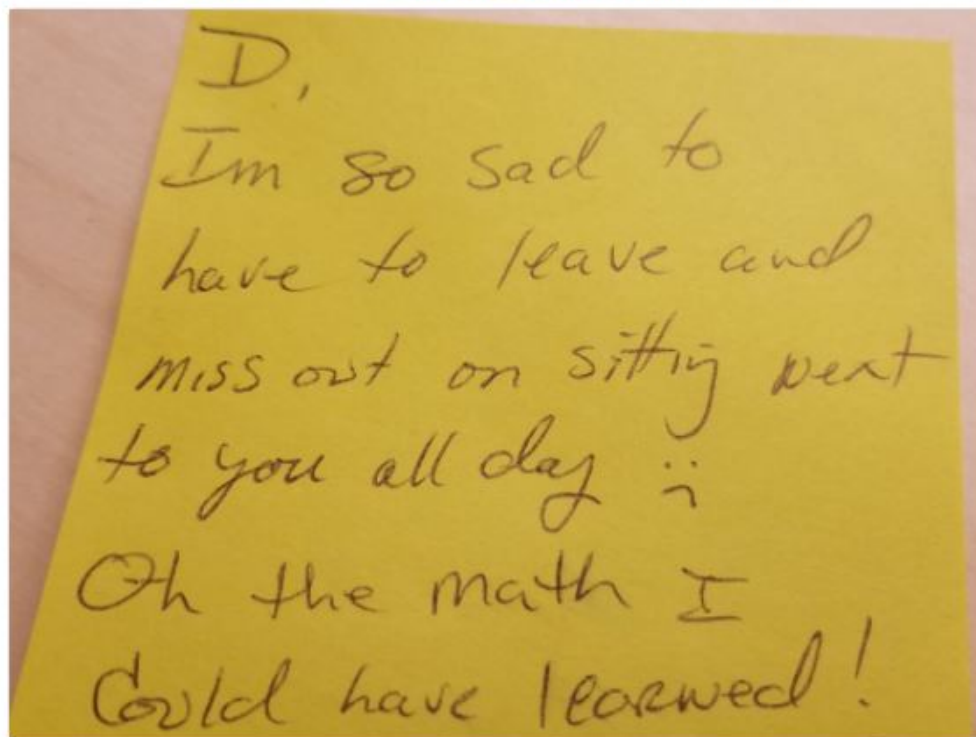 D,
Im so sad to
have to leave and
miss out on sitting next
to you all day :(
Oh the math I
Could have learned!